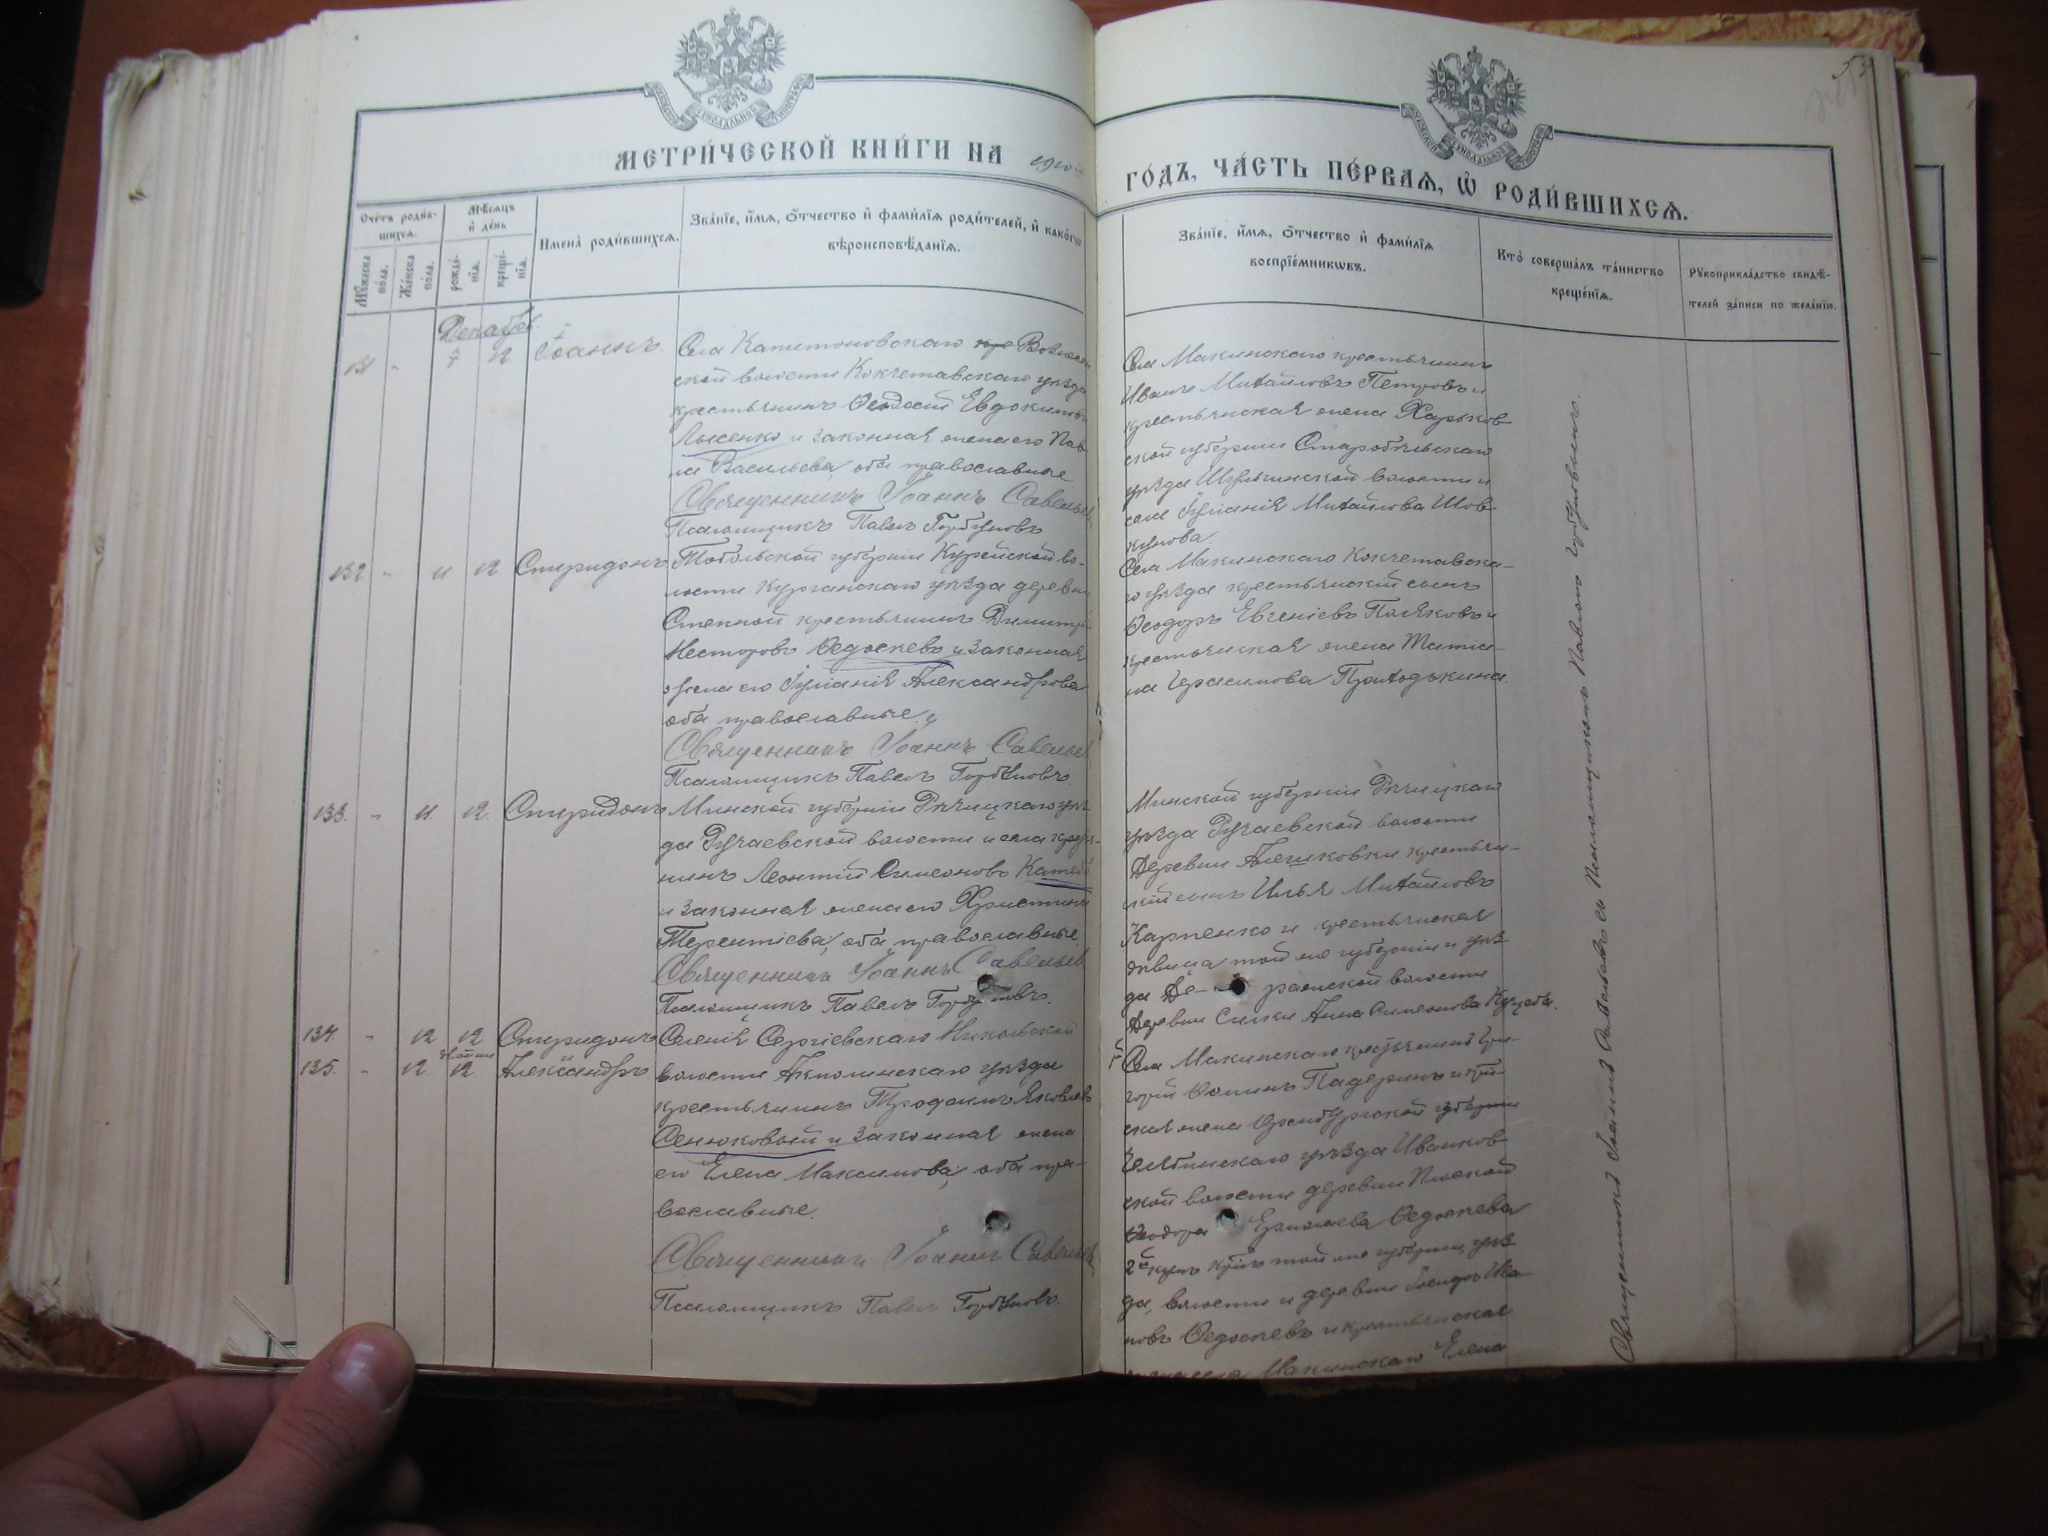 МЕТРИЧЕСКОЙ КНИГИ НА 1910
ГОДЪ, ЧАСТЬ ПЕРВАЯ, Ѡ РОДИВШИХСЯ.
Счетъ родив-
шихся.
Мѣсяцъ
и день
Мужеска
пола.
Женска
пола.
рожде-
нія.
креще-
нія.
Имена родившихся.
Званіе, имя, отчество и фамилія родителей, и какогѡ
вѣроисповѣданія.
Званіе, имя, отчество и фамилія
воспріемникѡвъ.
Кто совершалъ таинство
крещенія.
Рукоприкладство свидѣ-
телей записи по желанію.
Декабрь.
131 " 7 12 Іоаннъ.
Села Капитоновскаго
ской волости Кокчетавскаго уѣзда
крестьянинъ Ѳеодосій Евдокимовъ
Лысенко и законная жена его
Васильева, оба православные
Священникъ Іоаннъ Савельевъ
Псаломщикъ Павелъ Горбуновъ
Села Макинскаго крестьянинъ
Иванъ Михайловъ Петровъ и
крестьянская жена Харьков
ской губерніи Старобѣльскаго
уѣзда Шульгинской волости и
села Іуліанія Михайлова Шов-
кунова.
132 " 11 12 Спиридонъ
Тобольской губерніи Курейской во-
лости Курганскаго уѣзда деревни
Степной крестьянинъ Димитрій
Несторовъ Ѳедосѣевъ и законная
жена его Іуліанія Александрова
оба православные.
Священникъ Іоаннъ Савельевъ
Псаломщикъ Павелъ Горбуновъ.
Села Макинскаго Кокчетавска-
го уѣзда крестьянскій сынъ
Ѳеодоръ Евгеніевъ Поляковъ и
крестьянская жена Татіа-
на Герасимова Приходькина.
133. " 11. 12. Спиридонъ
Минской губерніи Рѣчицкаго уѣз
да Ручаевской волости и села крестья-
нинъ Леонтій Симеоновъ
и законная жена его Христина
Терентіева, оба православные
Священникъ Іоаннъ Савельевъ
Псаломщикъ Павелъ Горбуновъ.
Минской губерніи Рѣчицкаго
уѣзда Ручаевской волости
деревни крестьян-
скій сынъ Илья Михайловъ
Карпенко и крестьянская
дѣвица той же губерніи и уѣз
да волости
деревни Анна Симеонова
134. " 12 12 Спиридонъ
двойни
135. " 12. 12. Александръ
Селенія Сергіевскаго Никольской
волости Акмолинскаго уѣзда
крестьянинъ Трофимъ Яковлевъ
Сенюковый и законная жена
его Елена Максимова, оба пра-
вославные.
Священникъ Іоаннъ Савельевъ
Псаломщикъ Павелъ Горбуновъ.
Села Макинскаго крестьянинъ Гри-
горій Ѳоминъ Падеринъ и
ская жена Оренбургской губерніи
Челябинскаго уѣзда Иванков
ской волости деревни Плоской
Ермолаева Ѳедосѣева
2й кумъ той же губерніи, уѣз
да, волости и деревни Ива
новъ Ѳедосѣевъ и крестьянская
Макинскаго Елена
Священникъ Іоаннъ Савельевъ съ Псаломщикомъ Павломъ Горбуновымъ.